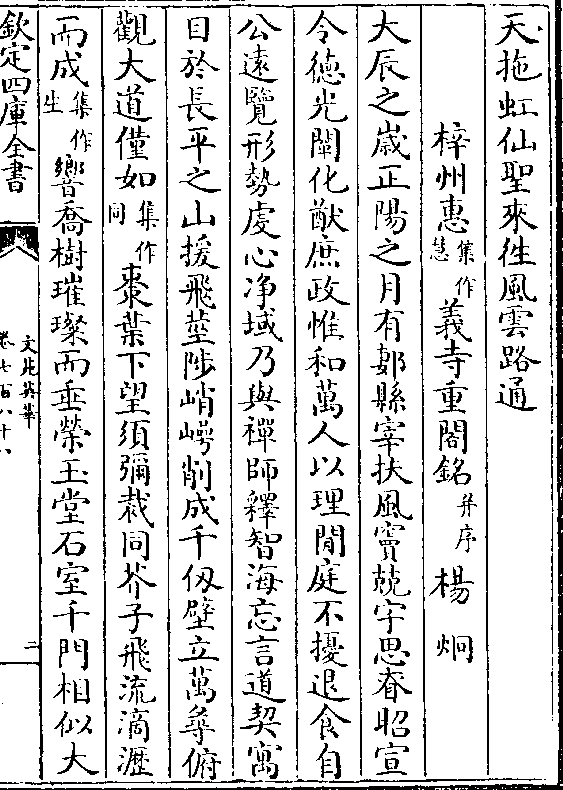 天拖虹仙聖來徃風雲路通
梓州惠集作慧義寺重閣銘并序 楊炯
大辰之歳正陽之月有郪縣宰扶風竇兢字思眘昭宣
令徳光闡化猷庶政惟和萬人以理閒庭不擾退食自
公逺覽形勢虔心净域乃與禪師釋智海忘言道契寓
目於長平之山援飛莖陟峭崿削成千仭壁立萬尋俯
觀大道僅如集作同棗葉下望須彌裁同芥子飛流滴瀝
而成集作生響喬樹璀璨而垂榮玉堂石室千門相似大
欽定四庫全書
文苑英華
卷七百八十八
二